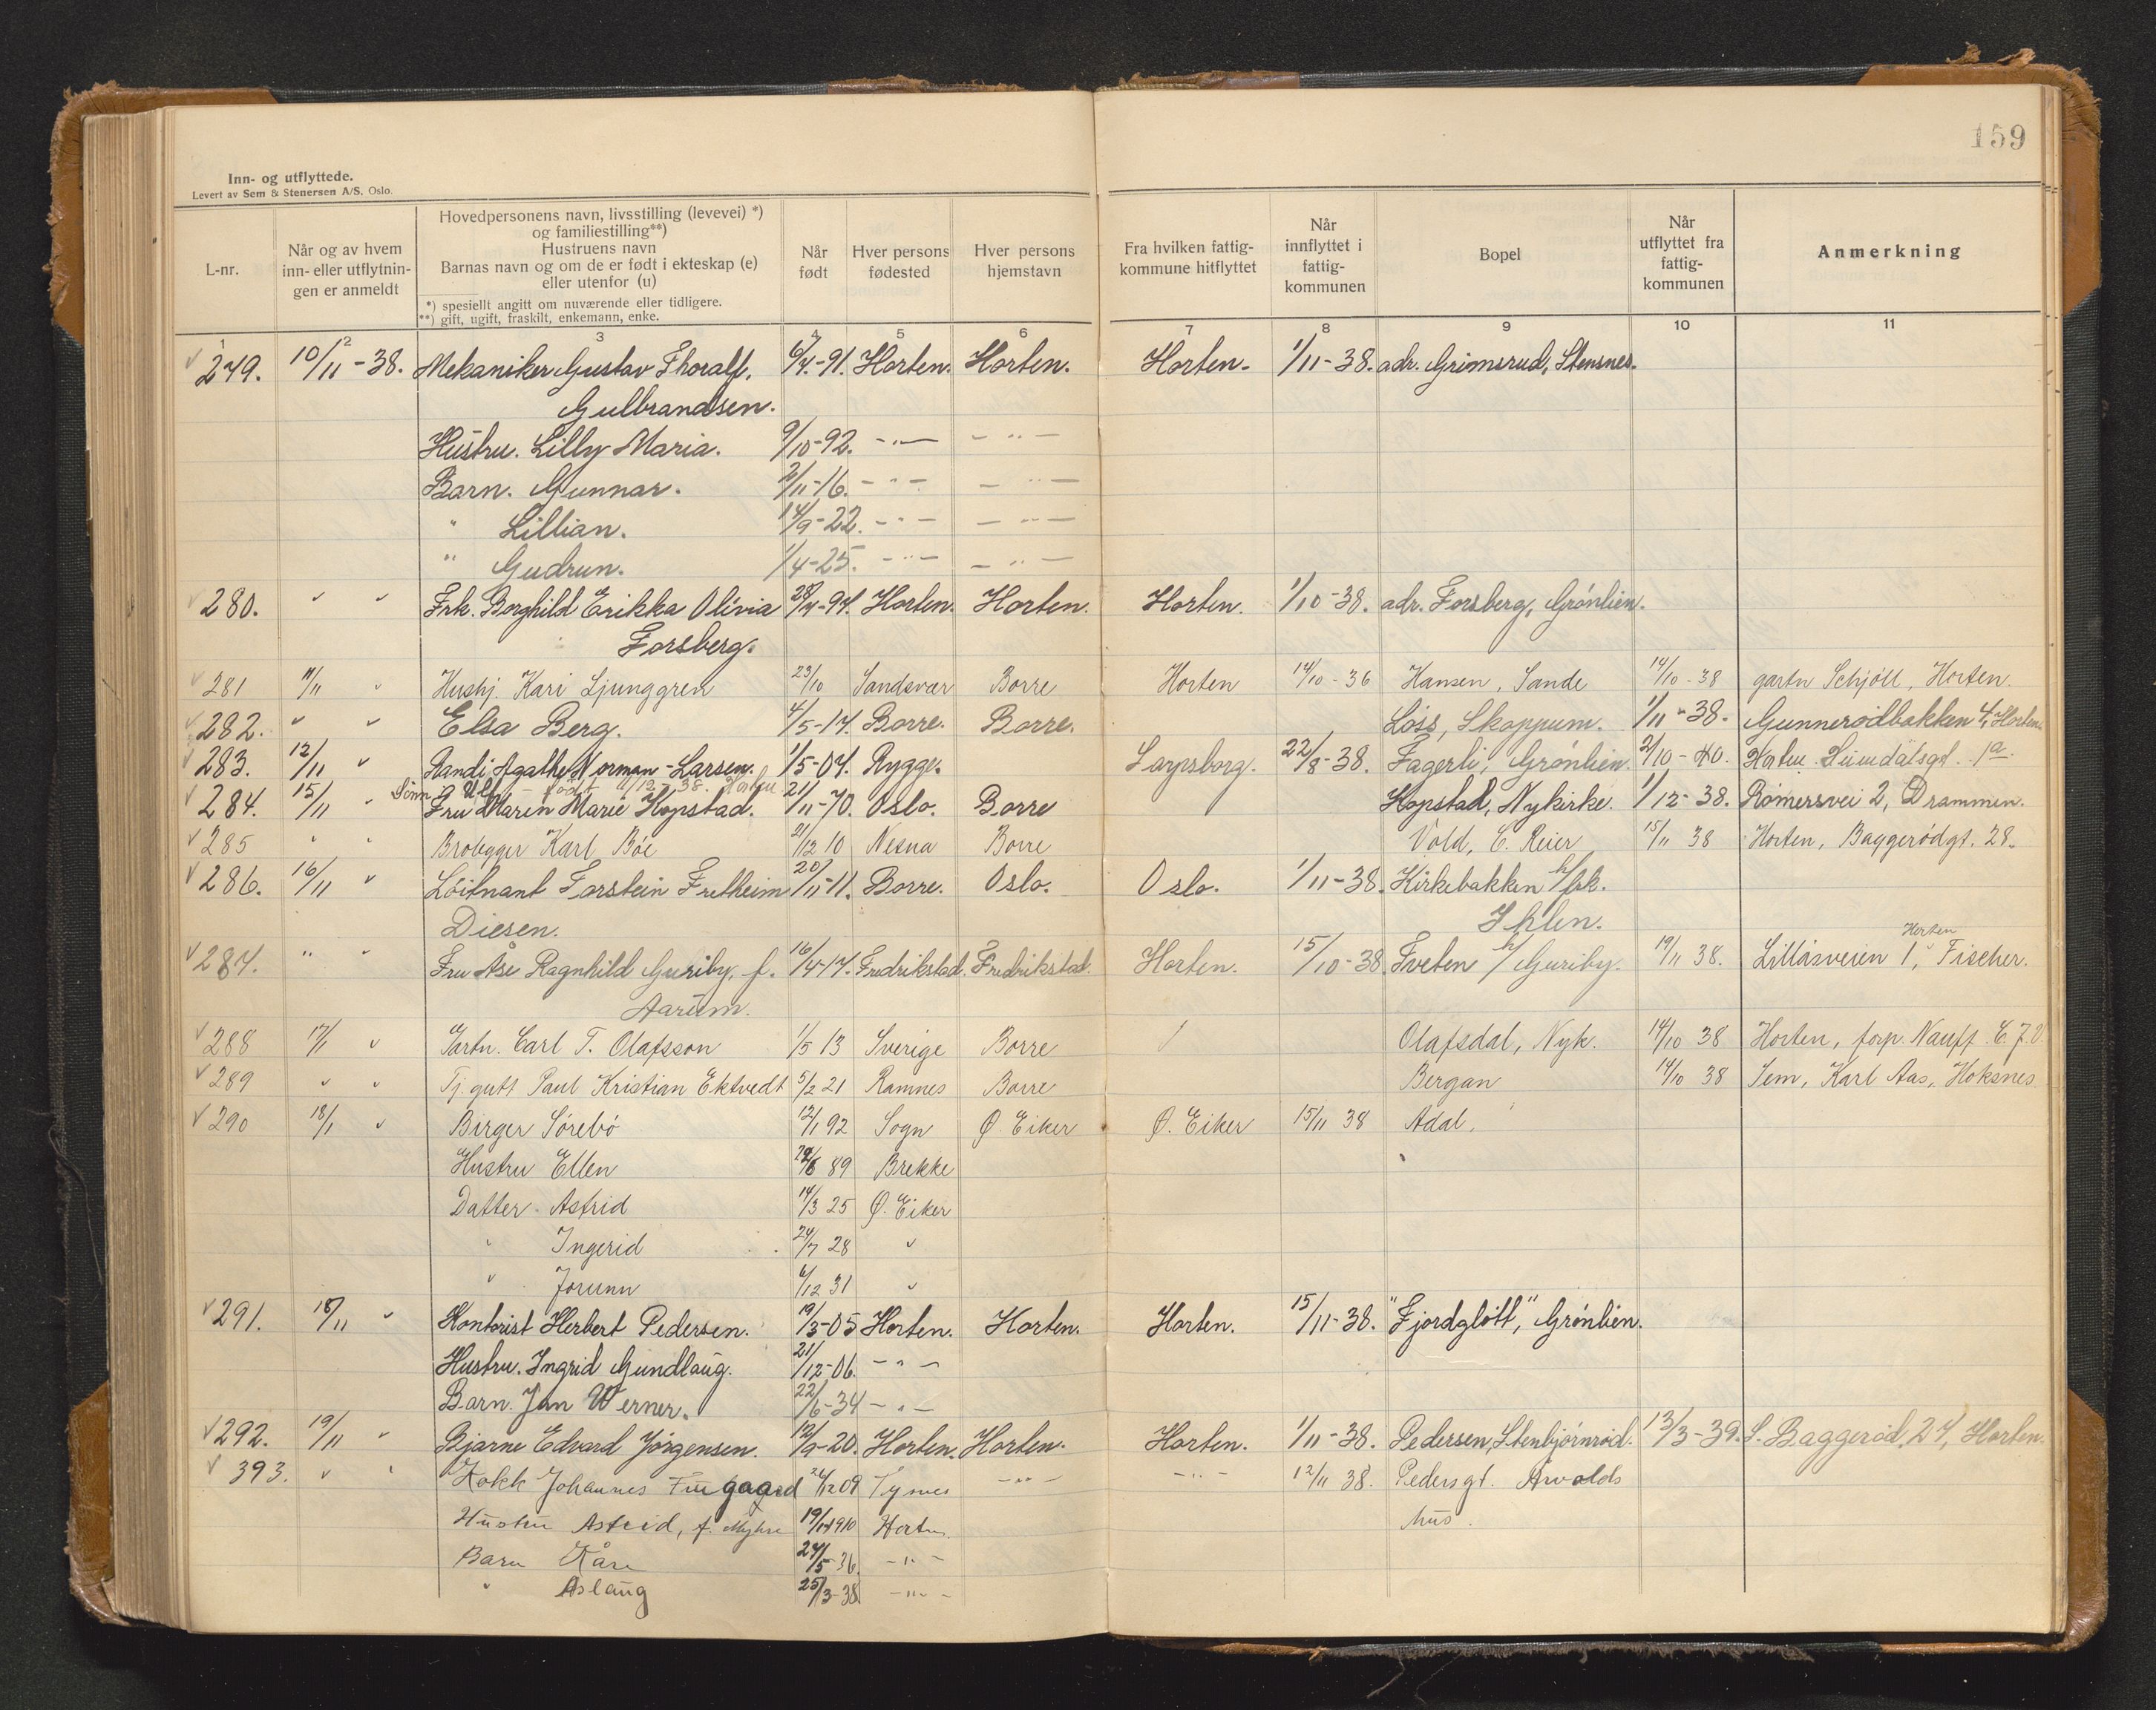 159
Inn- og utflyttede.
Levert av Sem & Stenersen A/S, Oslo.
L-nr.
Når og av hvem
inn- eller utflytnin-
gen er anmeldt
Hovedpersonens navn, livsstilling (levevei) *)
og familiestilling**)
Hustruens navn
Barnas navn og om de er født i ekteskap (e)
eller utenfor (u)
*) spesiellt angitt om nuværende eller tidligere.
**) gift, ugift, fraskilt, enkemann, enke.
Når
født
Hver persons
fødested
Hver persons
hjemstavn
Fra hvilken fattig-
kommune hitflyttet
Når
innflyttet i
fattig-
kommunen
Bopel
Når
utflyttet fra
fattig-
kommunen
Anmerkning
1 2 3 4 5 6 7 8 9 10 11
279. 10/11-38. Mekaniker Gustav Thoralf. 6/7.-91. Horten. Horten. Horten. 1/11-38. adr. Grimsrud, Stensnes.
Gulbrandsen.
Hustru. Lilly Maria. 9/10-92. -"- -"-
Barn. Gunnar. 2/11-16. -"- -"-
" Lillian. 14/9-22. -"- -"-
" Gudrun. 1/4-25. -"- -"-
280. " " Frk. Borghild Erikka Olivia 28/7-97. Horten. Horten. Horten. 1/10-38. adr. Forsberg, Grønlien.
Forsberg.
281 11/11 " Hushj. Kari Ljunggren 23/10 Sandsvær Borre Horten 14/10-36 Hansen, Sande 14/10-38 gartn Schjöll, Horten
282. " " Elsa Berg. 4/5-17. Borre. Borre. Løss, Skoppum. 1/11-38. Gunnerødbakken 4, Horten
283. 12/11 " Randi Agathe Norman-Larsen. 1/5-07. Rygge. Sarpsborg. 22/8-38. Fagerli, Grønlien. 2/10-40. Horten 1a
Sønn Ulf - født 38. Horten
284. 15/11 " Fru Maren Marie Hopstad. 21/11-70. Oslo. Borre Hopstad, Nykirke. 1/12-38. Rømersvei 2, Drammen.
285 " " Brobygger Karl Böe 21/12 10 Nesna Borre Vold, E. Reier 15/11 38 Horten, Baggerødgt. 28.
286. 16/11 " Løitnant Torstein Fretheim 20/11-11. Borre. Oslo. Oslo. 1/11-38. Kirkebakken h/frk.
Diesen. Ihlen.
287. " " Fru Åse Ragnhild Guriby, f. 16/4-17. Fredrikstad. Fredrikstad. Horten. 15/10-38 Tveten h/Guriby. 19/11 38. Lillåsveien 1, Fischer. Horten
Aarum.
288 17/11 " Gartn. Carl T. Olafsson 1/5 13 Sverige Borre Olafsdal, Nyk. 14/10 38 Horten, forp. Nauff. C.J.V.
289 " " Tj.gutt Paul Kristian Ektvedt 5/2 21 Ramnes Borre Bergan 14/10 38 Sem, Karl Aas, Hoksnes
290 18/1 " Birger Sørebö 12/1 92 Sogn Ø. Eiker Ø. Eiker 15/11 38 Adal.
Hustru Ellen 89 Brekke
Datter Astrid 14/3 25 Ø. Eiker
" Ingerid 24/7 28 "
" Jorunn 6/12 31 "
291. 18/11 " Kontorist Herbert Pedersen. 19/3-05 Horten. Horten. Horten. 15/11-38. "Fjordgløtt," Grønlien.
Hustru. Ingrid Gundlaug. 21/12-06. -"-
Barn. Jan Werner. 22/6-34 -"-
292. 19/11 " Bjarne Edvard Jørgensen. 12/9-20. Horten. Horten. Horten. 1/11-38. Pedersen, Stenbjørnrød. 13/3-39. S. Baggerød, 27, Horten.
393. " " Kokk Johannes 09 -"- -"- 12/11 38. Pedersgt. Arvolds
Hustru Astrid, f. Myhre Horten. hus.
Barn Kåre 24/5-36. -"-
" Aslaug 25/3-38. -"-